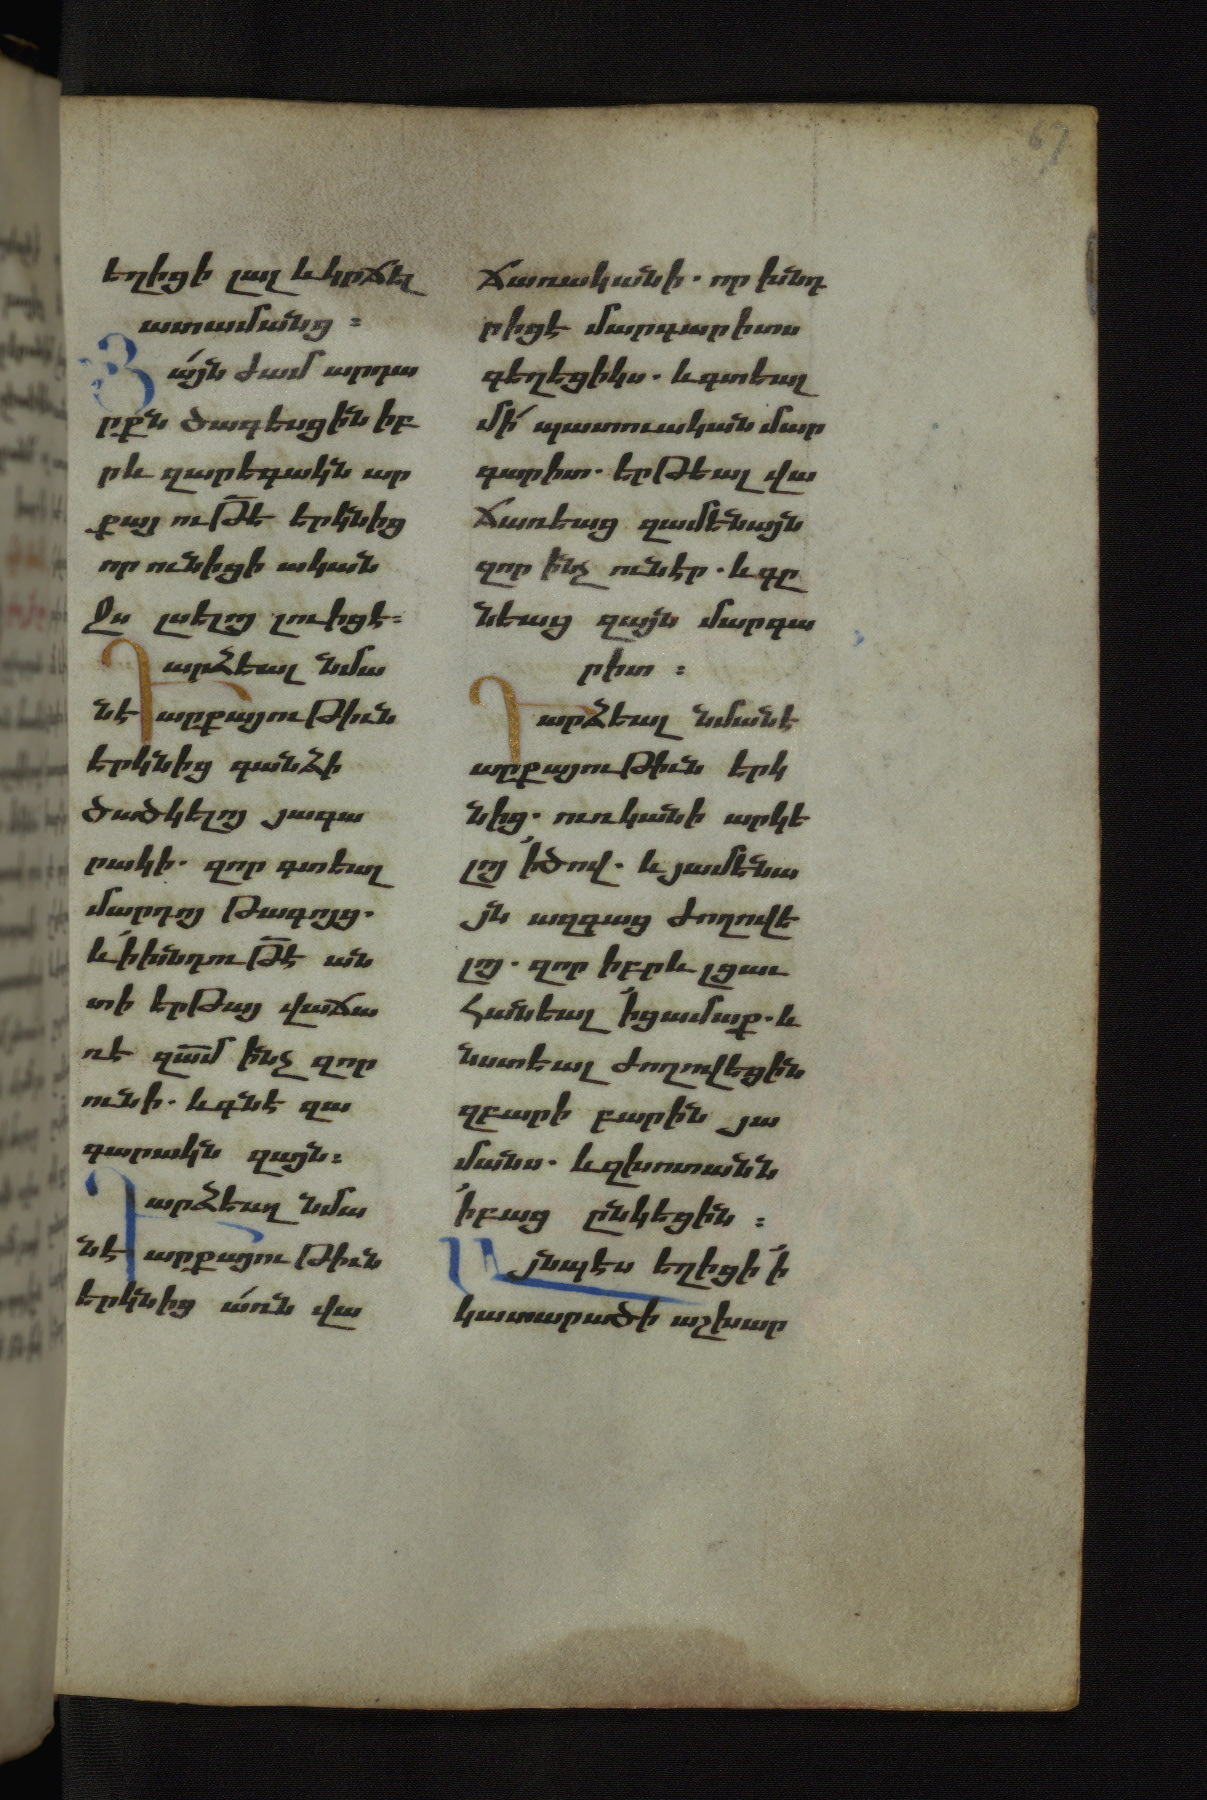 67
եղիցի լալ և կրճել
ատամանց ։
Յայն ժամ արդա
րքն ծագեսցին իբ
րև զարեգակն ար
քայութե երկնից
որ ունիցի ական
ջս լսելոյ լուիցէ։
Դարձեալ նմա
նէ արքայութիւն
երկնից գանձի
ծածկելոյ յագա
րակի. զոր գտեալ
մարդոյ թագոյց.
և ի խնդութէ ան
տի երթայ վաճա
ռէ զամ ինչ զոր
ունի. և գնէ զա
գարակն զայն։
Դարձեալ նմա
նէ արքայութիւն
երկնից առն վա
ճառականի. որ խնդ
րիցէ մարգարիտս
գեղեցիկս. և գտեալ
մի պատուական մար
գարիտ. երթեալ վա
ճառեաց զամենայն
զոր ինչ ունէր. և գը
նեաց զայն մարգա
րիտ ։
Դարձեալ նմանէ
արքայութիւն երկ
նից. ուռկանի արկե
լոյ ի ծով. և յամենա
յն ազգաց ժողովե
լոյ. զոր իբրև լցաւ
հանեալ ի ցամաք. և
նստեալ ժողովեցին
զբարի բարին յա
մանս. և զխոտանն
ի բաց ընկեցին ։
Այնպէս եղիցի ի
կատարածի աշխար